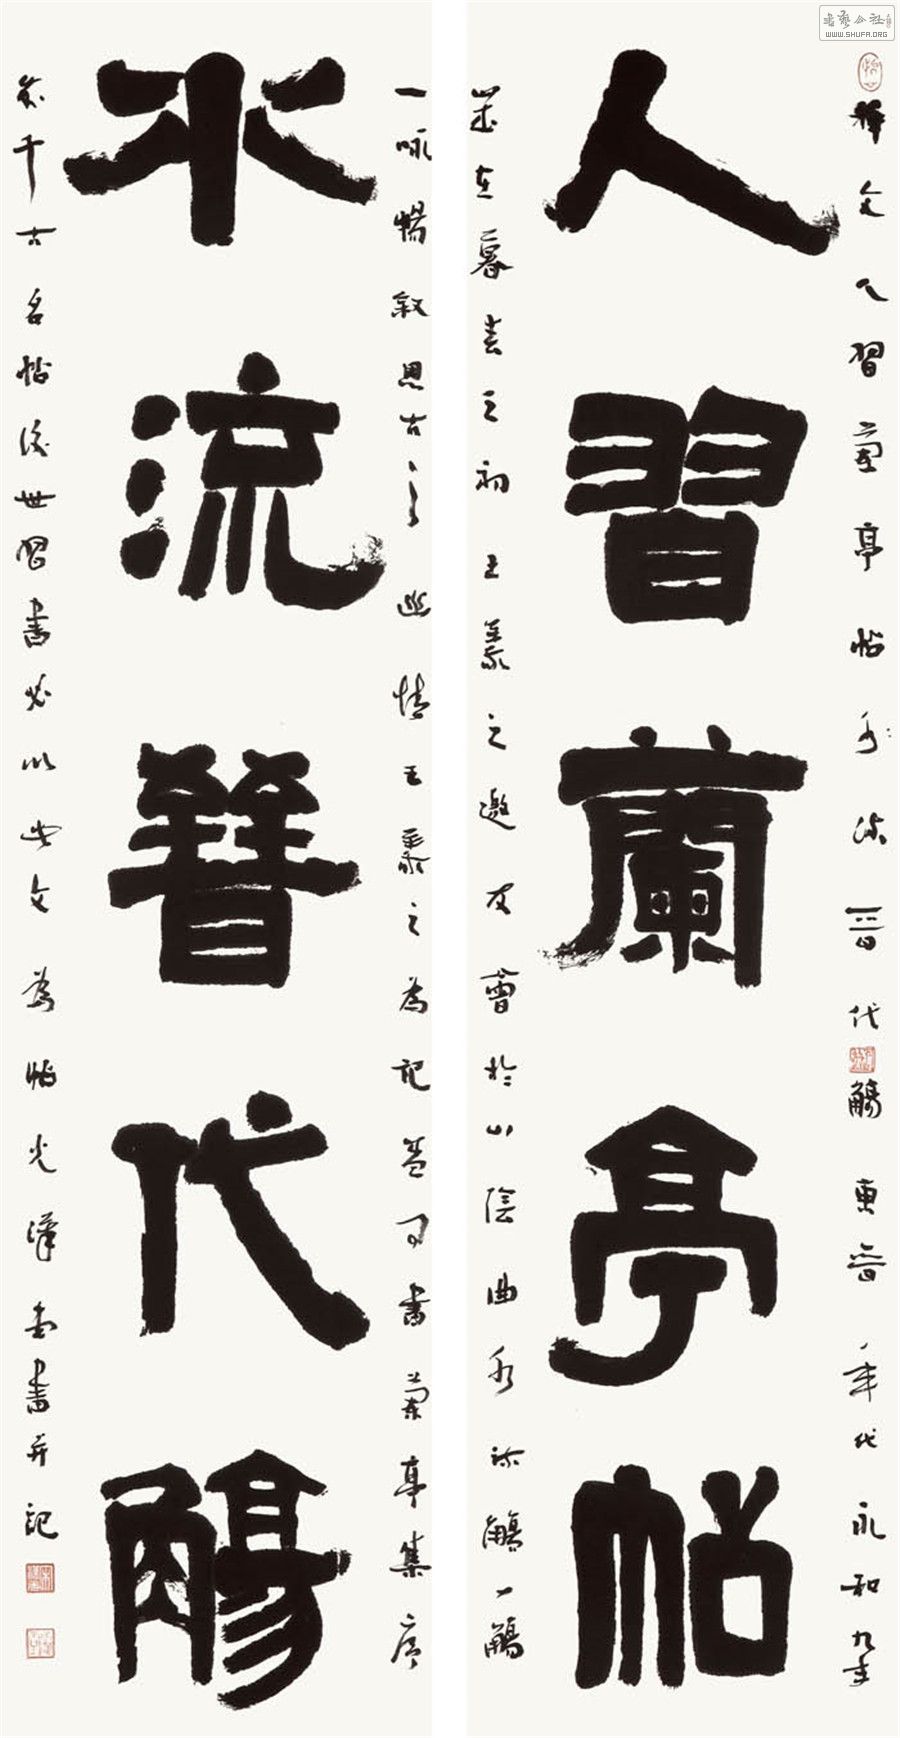 人習蘭亭帖
水流晉代觴
釋文人習蘭亭帖水流晉代觴東晉年代永和九年
歲在暮春之初王羲之邀友會於山陰曲水流觴一觴
一咏暢敘思古之幽情王羲之為記蓋可書蘭亭集序
千古名帖後世習書必以此文為帖光漢書并記
WWW.SHUFA.ORG